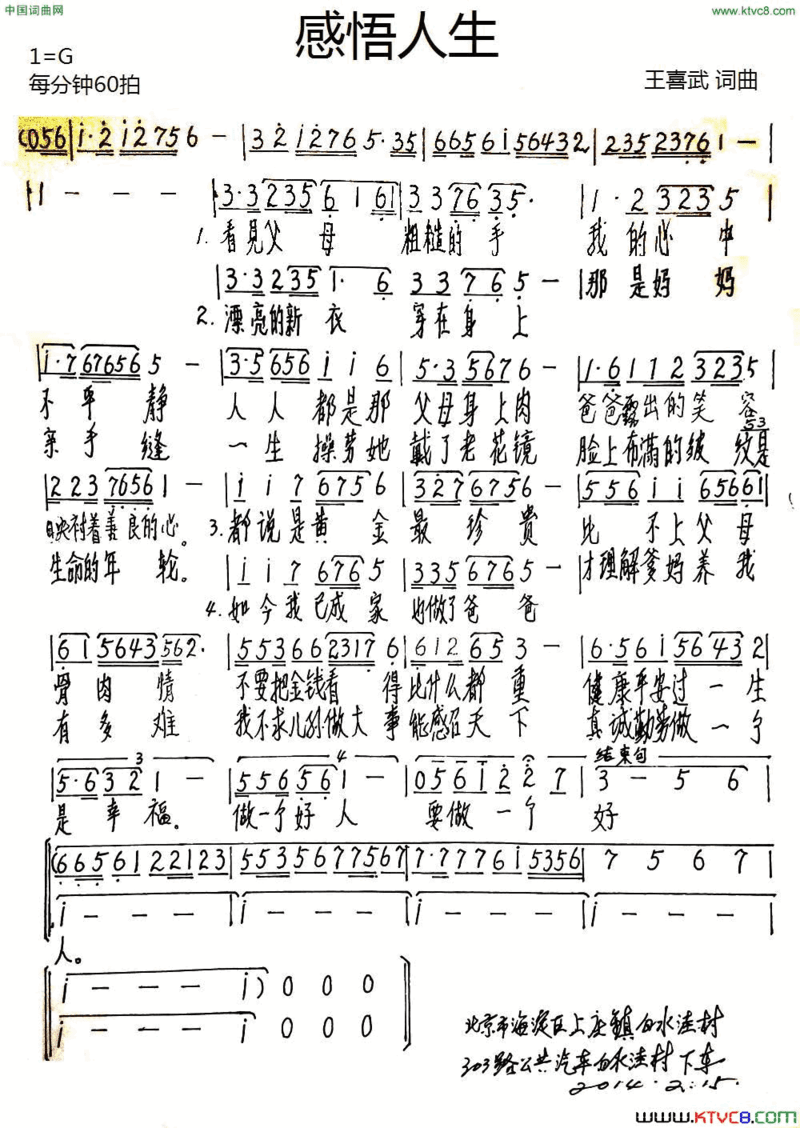 中国词曲网
www.ktvc8.com
感悟人生
1=G
每分钟60拍
王喜武 词曲
(056 | i·2 i2756 - | 32i276 5·35 | 6656i56432 | 2352376 1 - |
1 - - - | 3·3235 6 1 61 | 3376 35 | 1·2 323 5
1. 看見父母 粗糙的手 我的心中
3·3235 1· 6 | 3376 5 - | 那是妈妈
2. 漂亮的新衣 穿在身上
1·767656 5 - | 3·5 656 i i 6 | 5·35676 - | 1·6112 3235
不平静 人人都是那 父母身上肉 爸爸露出的笑容
亲手缝 一生操劳她 戴了老花镜 脸上布满的皱纹是
53
223 7656 1 - | i i 7 675 6 | 327 6756 - | 556 i i 65661
映衬着善良的心。 3. 都说是黄金 最珍贵 比不上父母
生命的年轮。 i i 7 676 5 | 335 6765 - | 才理解爹妈养我
4. 如今我已成家 也做了爸爸
6i 5643 562· | 55366 2317 6 | 612 65 3 - | 6·56i 5643 2
骨肉情 不要把金钱看得 比什么都重 健康平安过一生
有多难 我不求儿孙做大事 能感召天下 真诚勤劳做一个
3 4 结束句
5·6 32 1 - | 556 56 1 - | 056 i 2 2 7 | 3 - 5 6
是幸福。 做一个好人 要做一个 好
(66561 22123 | 553567 7567 | 7·7776i 5356 | 7 5 6 7
i - - - | i - - - | i - - - | i - - -
人。
i - - - | i) 0 0 0
i - - - | i 0 0 0
北京市海淀区上庄镇白水洼村
303路公共汽车白水洼村下车
2014·2·15.
www.KTVC8.com